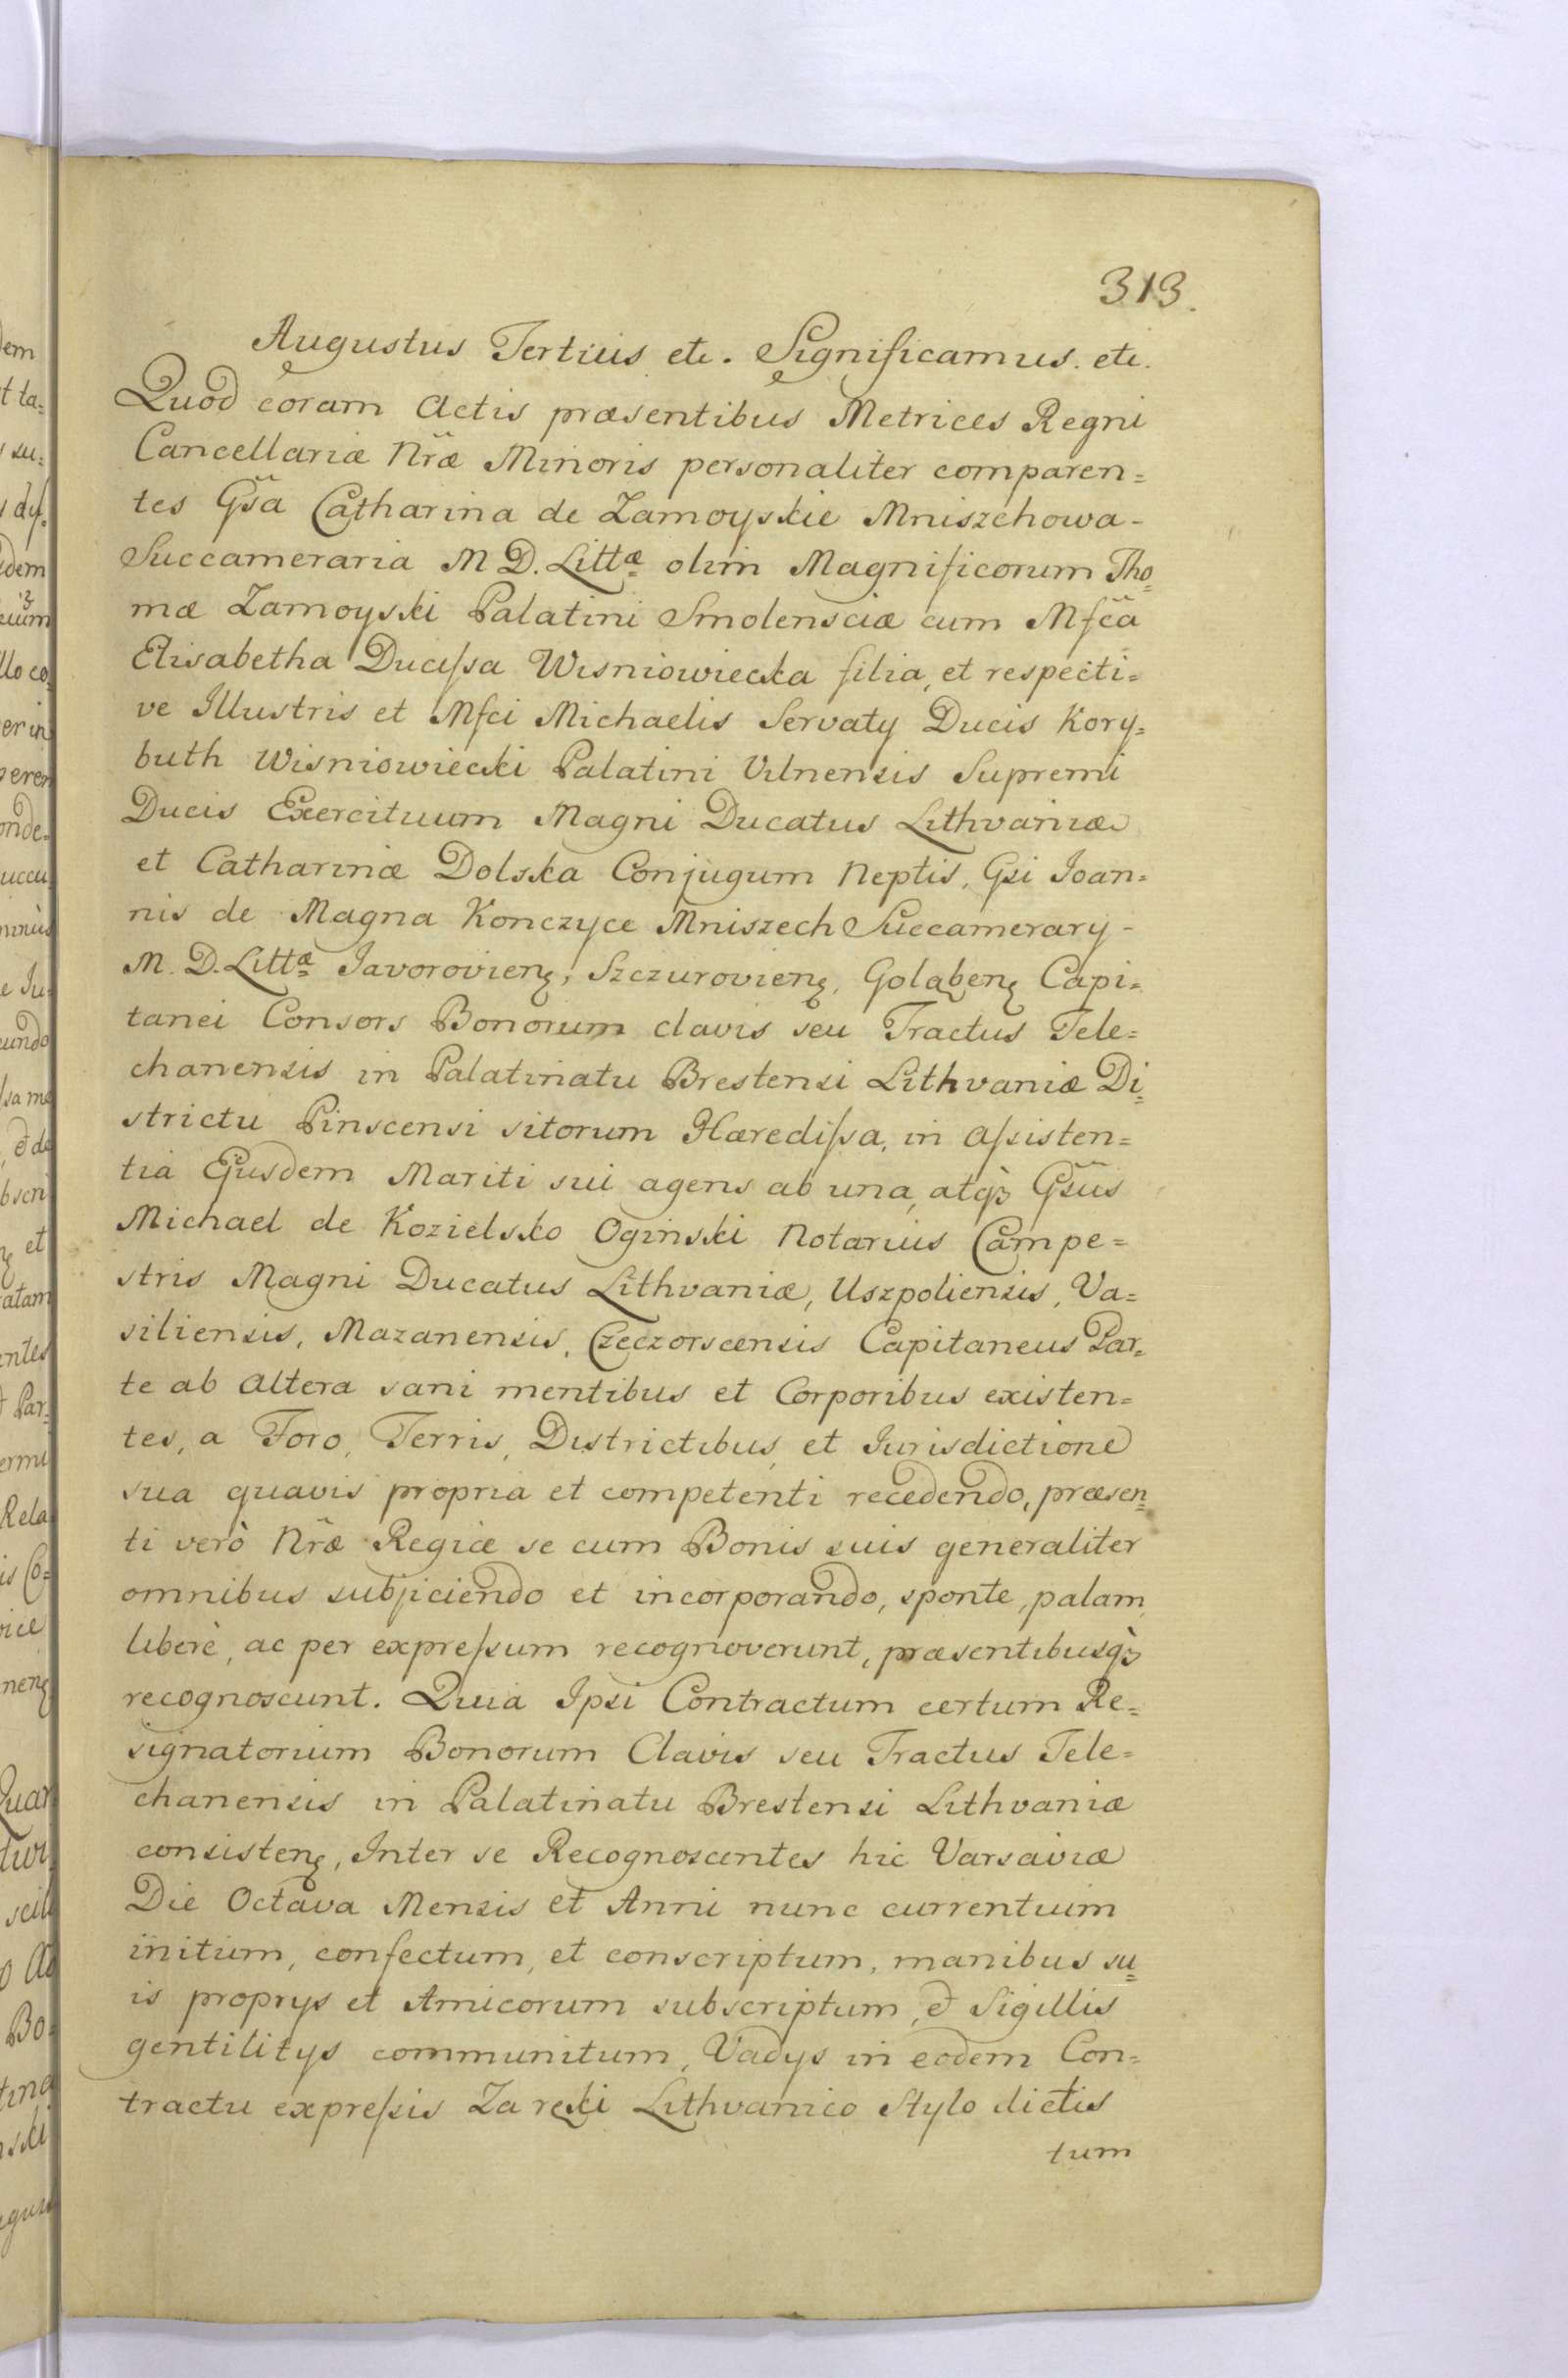 313.
Augustus Tertius etc. Significamus. etc.
Quod coram Actis præsentibus Metrices Regni
Cancellariæ Nr̃æ Minoris personaliter comparen=
tes Gs̃a Catharina de Zamoyskie Mniszchowa-
Succameraria M D. Littæ olim Magnificorum Tho=
mæ Zamoyski Palatini Smolensciæ cum Mfc̃a
Elisabetha Ducissa Wisniowiecka filia, et respecti=
ve Illustris et Mfci Michaelis Servaty Ducis Kory=
buth Wisniowiecki Palatini Vilnensis Supremi
Ducis Exercituum Magni Ducatus Lithvaniæ
et Catharinæ Dolska Conjugum Neptis, Gsi Joan=
nis de Magna Konczyce Mniszech Succamerary-
M. D. Littæ Javorovienę, Szczurovienę, Goląbenę Capi=
tanei Consors Bonorum clavis seu Tractus Tele=
chanensis in Palatinatu Brestensi Lithvaniæ Di=
strictu Pinscensi sitorum Hæredissa, in assisten=
tia Ejusdem Mariti sui agens ab una, atqꝫ Gs̃us
Michael de Kozielsko Oginski Notarius Campe=
stris Magni Ducatus Lithvaniæ, Uszpoliensis, Va=
siliensis, Mazanensis, Czeczorscensis Capitaneus Par=
te ab altera sani mentibus et Corporibus existen=
tes, a Foro, Terris, Districtibus, et Iurisdictione
sua quavis propria et competenti recedendo, præsen=
ti verò Nr̃æ Regiæ se cum Bonis suis generaliter
omnibus subjiciendo et incorporando, sponte, palam,
liberè, ac per expressum recognoverunt, præsentibusqꝫ
recognoscunt. Quia Ipsi Contractum certum Re=
signatorium Bonorum Clavis seu Tractus Tele=
chanensis in Palatinatu Brestensi Lithvaniæ
consistenę, Inter se Recognoscentes hic Varsaviæ
Die Octava Mensis et Anni nunc currentium
initum, confectum, et conscriptum, manibus su=
is propriys et Amicorum subscriptum, et Sigillis
gentilitys communitum, Vadys in eodem Con=
tractu expressis Za ręki Lithvanico Stylo dictis
tum